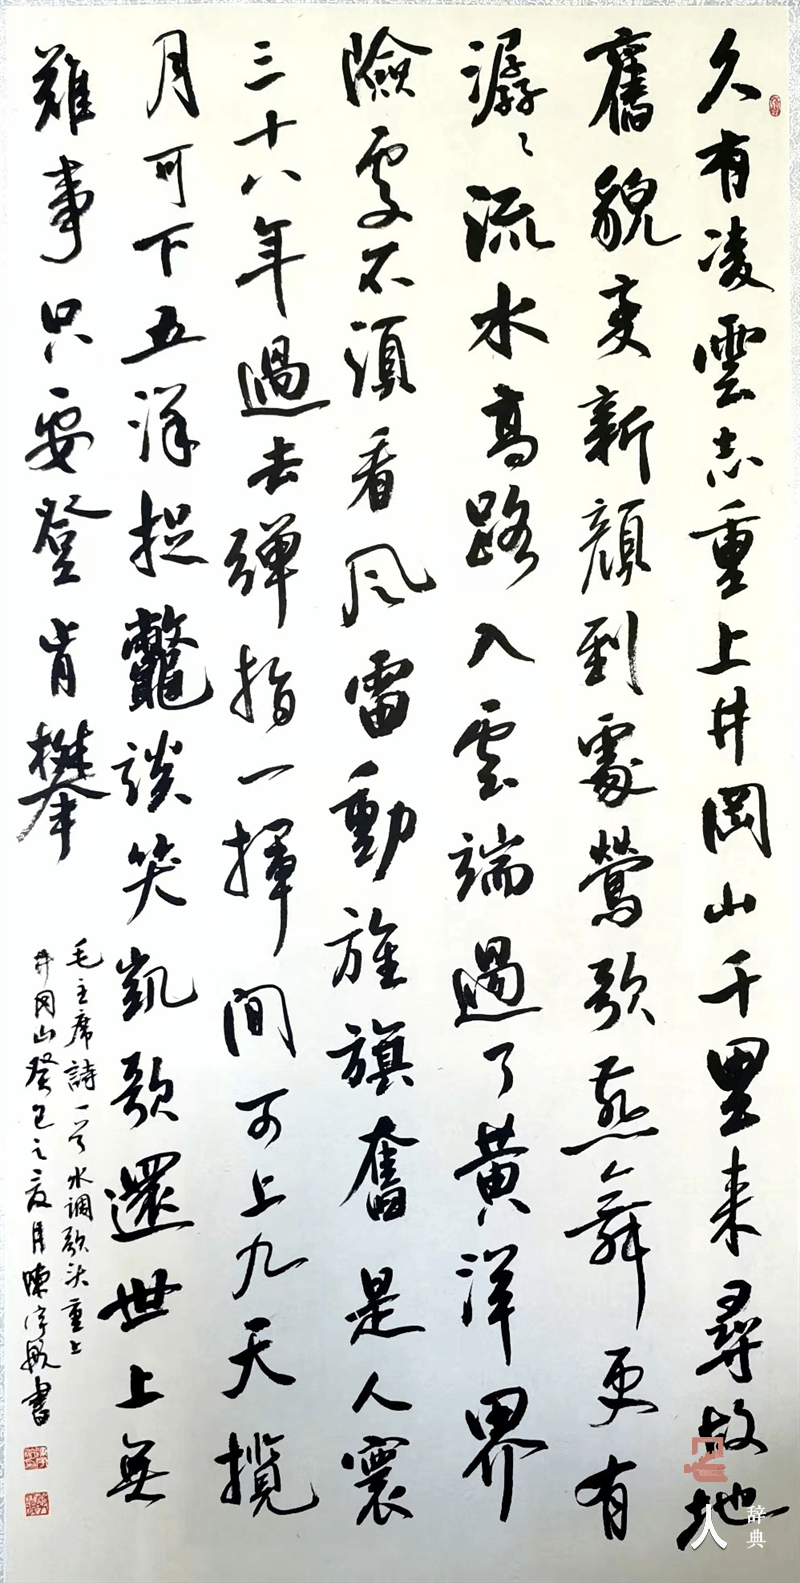 久有凌雲志重上井岡山千里来尋故地
舊貌变新顔到處鶯歌燕舞更有
潺〻流水高路入雲端過了黄洋界
險處不須看风雷動旌旗奮是人寰
三十八年過去彈指一揮間可上九天攬
月可下五洋捉鼈談笑凱歌還世上無
難事只要登肯攀
毛主席詩一首水调歌头重上
井冈山癸巳之夏月陳書
人
辞典